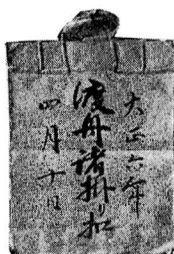 大正六年
渡舟諸掛り扣
四月十日